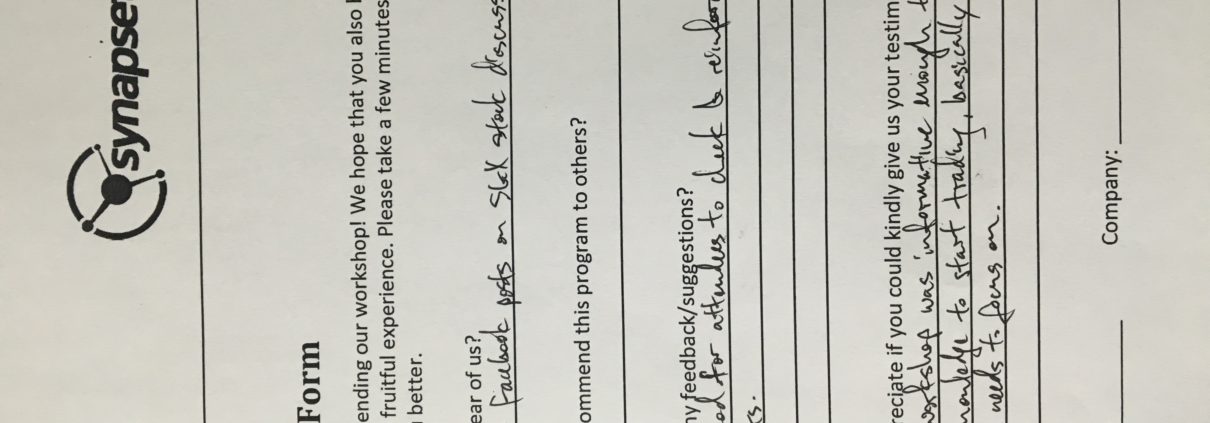 synapse
Form
ending our workshop! We hope that you also
fruitful experience. Please take a few minutes
better.
ear of us?
Facebook posts on stock discuss
ommend this program to others?
ny feedback/suggestions?
ed for attendees to check &
reciate if you could kindly give us your testim
workshop was informative enough
knowledge to start trading, basically
needs to focus on.
Company: